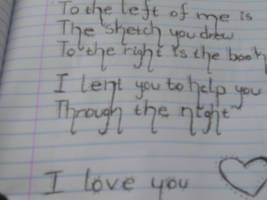 To the left of me is
The sketch you drew
To the right is the book
I lent you to help you
Through the night
I love you